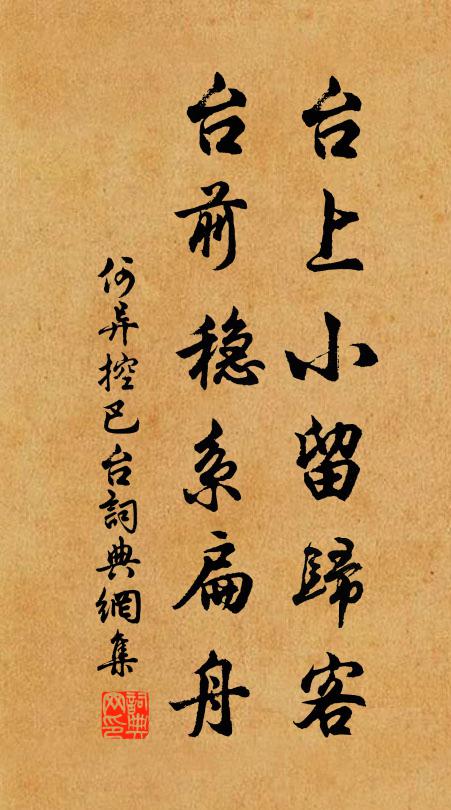 台上小留歸客
台前稳系扁舟
何异控巴台詞典網集
詞典
网印